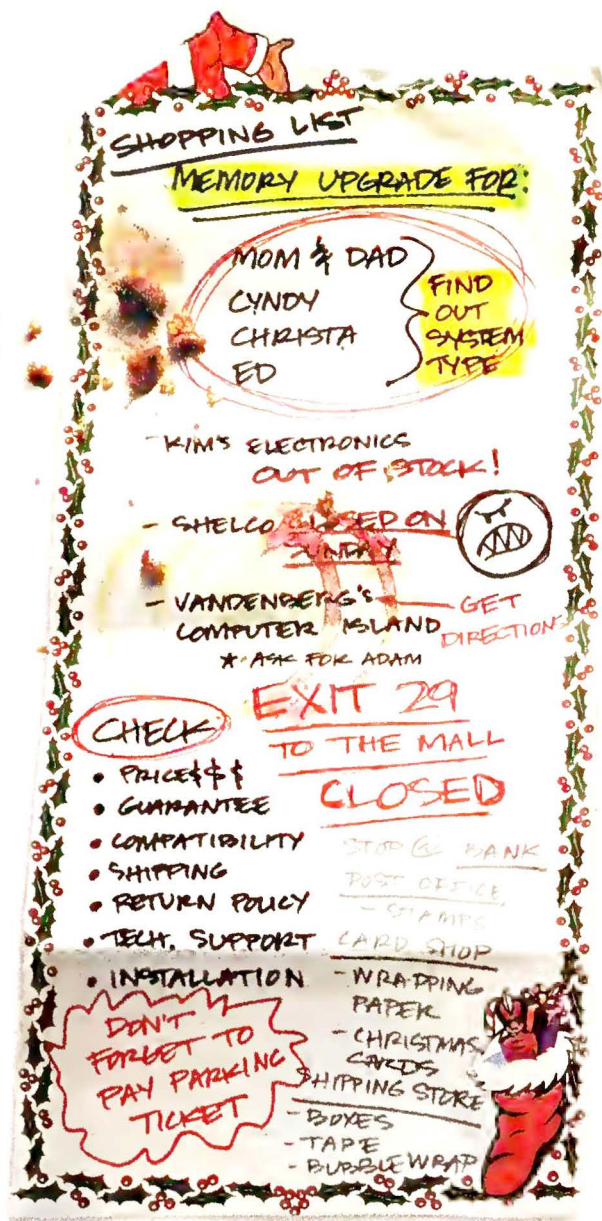 SHOPPING LIST
MEMORY UPGRADE FOR:
MOM & DAD
CYNDY
CHRISTA
ED
FIND
OUT
SYSTEM
TYPE
- KIM'S ELECTRONICS
OUT OF STOCK!
- SHELCO CLOSED ON
SUNDAY
- VANDENBERG'S
COMPUTER ISLAND
GET
DIRECTIONS
* ASK FOR ADAM
EXIT 29
TO THE MALL
CLOSED
CHECK
• PRICE$$$
• GUARANTEE
• COMPATIBILITY
• SHIPPING
• RETURN POLICY
• TECH. SUPPORT
• INSTALLATION
STOP @ BANK
POST OFFICE
- STAMPS
CARD SHOP
- WRAPPING
PAPER
- CHRISTMAS
CARDS
SHIPPING STORE
- BOXES
- TAPE
- BUBBLE WRAP
DON'T
FORGET TO
PAY PARKING
TICKET